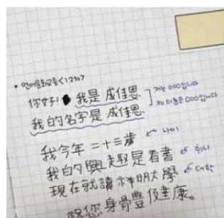 你好! 我是成佳恩
我的名字是成佳恩
我今年二十三歲 나이
我的興趣是看書 취미
現在就讀祥明大學 대학
祝您身體健康。